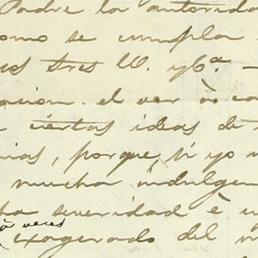 Padre la autorida
omo se cumpla
os tres
acion. el ver
ciertas ideas de
ias, porque, si yo
mucha indulgen
ta severidad è
à veces
exagerado del